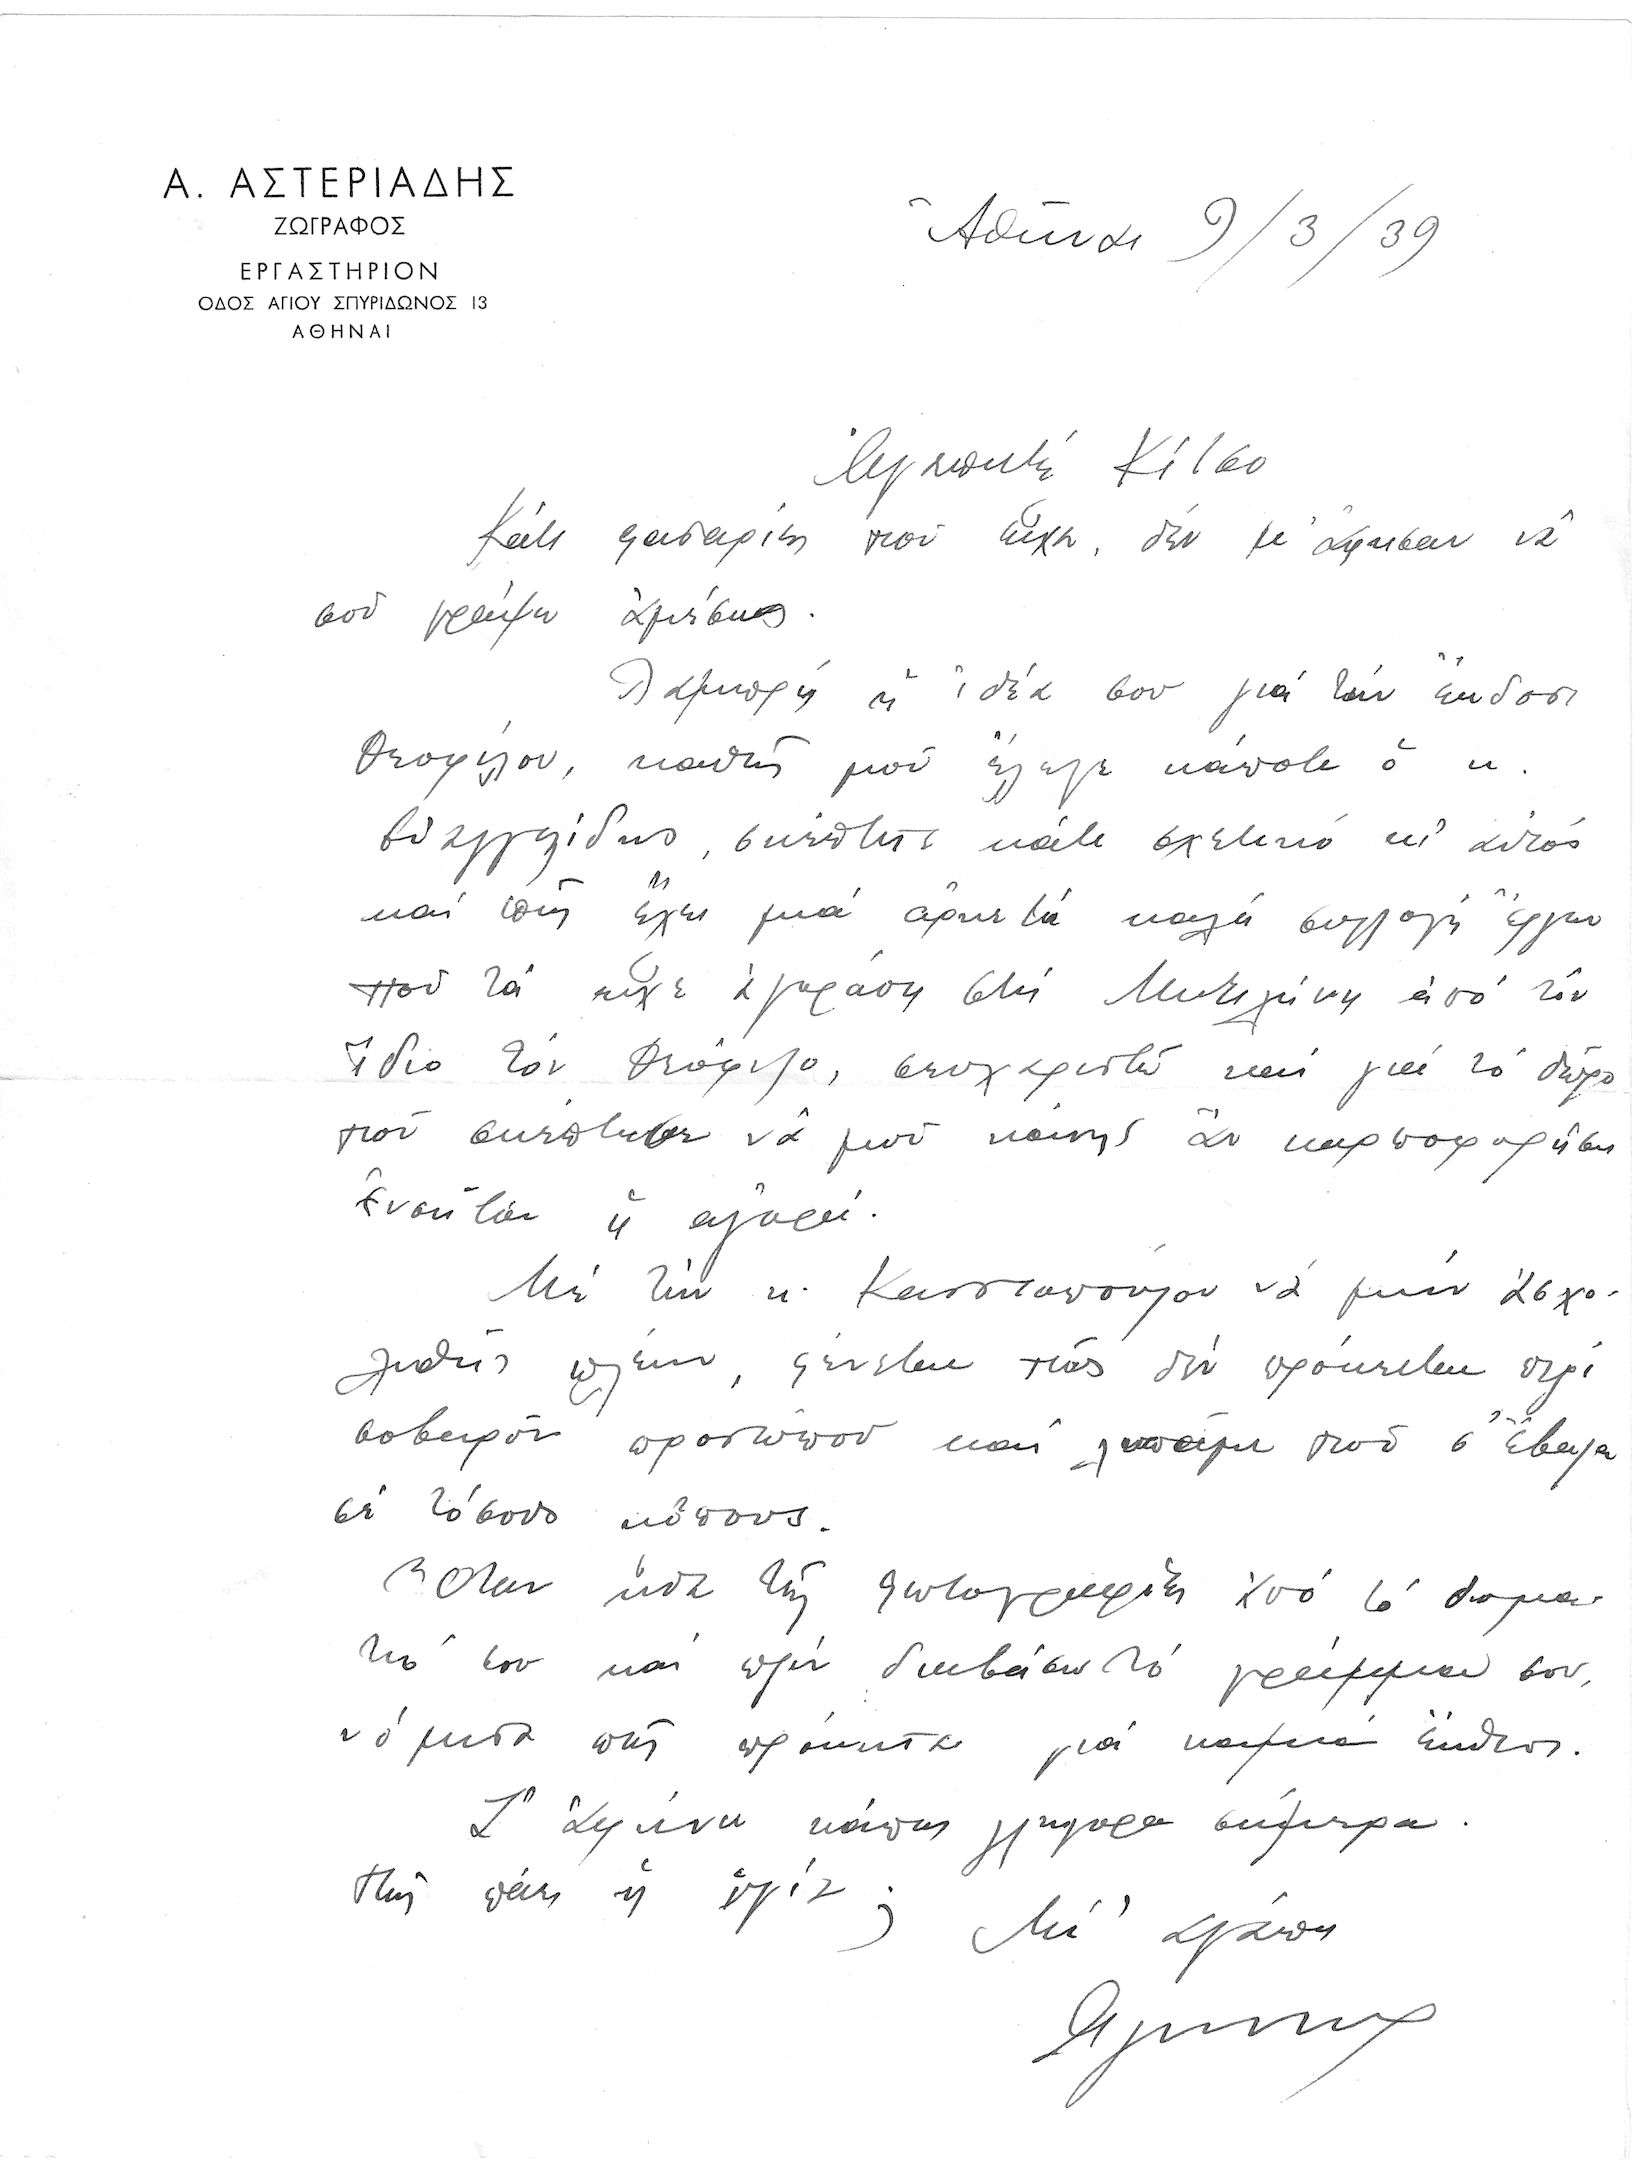 Α. ΑΣΤΕΡΙΑΔΗΣ
ΖΩΓΡΑΦΟΣ
ΕΡΓΑΣΤΗΡΙΟΝ
ΟΔΟΣ ΑΓΙΟΥ ΣΠΥΡΙΔΩΝΟΣ 13
ΑΘΗΝΑΙ
Ἀθῆναι 9/3/39
Ἀγαπητέ Κίτσο
Κάτι φασαρίες πού εἶχα, δέν μ' ἄφησαν νά
σοῦ γράψω ἀμέσως.
Λαμπρή ἡ ἰδέα σου γιά τήν ἔκδοσι
Θεοφίλου, καθώς μοῦ ἔλεγε κάποτε ὁ κ.
Εὐαγγελίδης, σκέπτεται κάτι σχετικό κι' αὐτός
καί πώς ἔχει μιά ἀρκετά καλή συλλογή ἔργων
πού τά εἶχε ἀγοράση στή Μυτιλήνη ἀπό τόν
ἴδιο τόν Θεόφιλο, σ' εὐχαριστῶ καί γιά τό δῶρο
πού σκέπτεσαι νά μοῦ κάνης ἄν καρποφορήση
ἐννοεῖται ἡ ἀγορά.
Μέ τήν κ. Κωνσταντοπούλου νά μήν ἀσχο-
ληθῆς πλέον, φαίνεται πώς δέν πρόκειται περί
σοβαροῦ προσώπου καί λυπᾶμαι πού σ' ἔβαλα
σέ τόσους κόπους.
Ὅταν εἶδα τίς φωτογραφίες ἀπό τό δωμά-
τιό σου καί πρίν διαβάσω τό γράμμα σου,
νόμισα πώς πρόκειται γιά καμμιά ἔκθεσι.
Σ' ἀφήνω κάπως γρήγορα σήμερα.
Πῶς πάει ἡ ὑγεία;
Μέ ἀγάπη